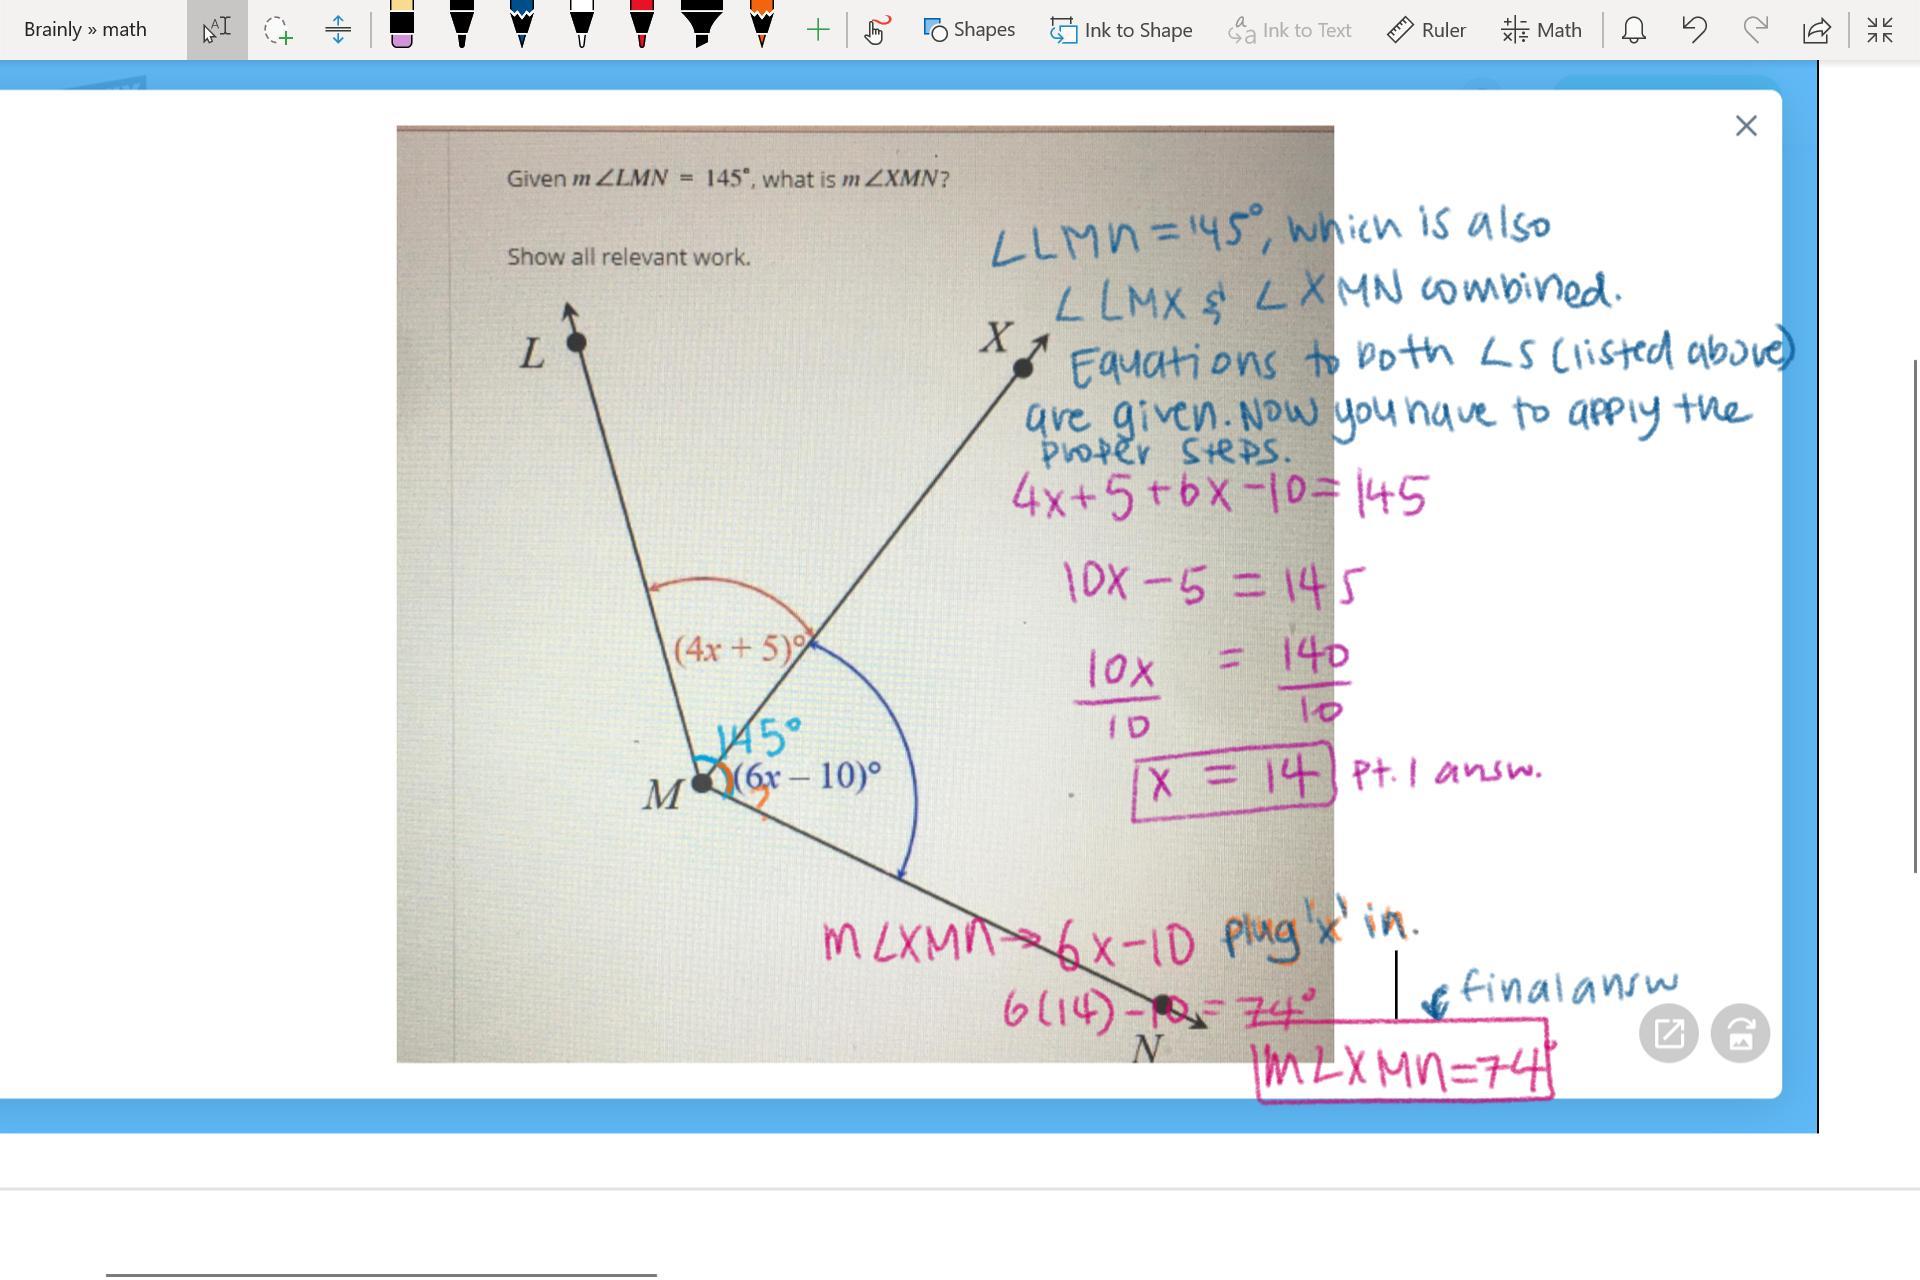 Brainly » math
Shapes
Ink to Shape
Ink to Text
Ruler
Math
Given m∠LMN = 145°, what is m∠XMN?
Show all relevant work.
∠LMN = 145°, which is also
∠LMX & ∠XMN combined.
Equations to both ∠s (listed above)
are given. Now you have to apply the
proper steps.
L
X
4x+5+6x-10=145
10x-5=145
(4x + 5)°
10x/10 = 140/10
145°
(6x – 10)°
?
M
x = 14 pt. 1 answ.
m∠XMN→6x-10 plug 'x' in.
6(14)-10=74°
final answ
N
m∠XMN=74°